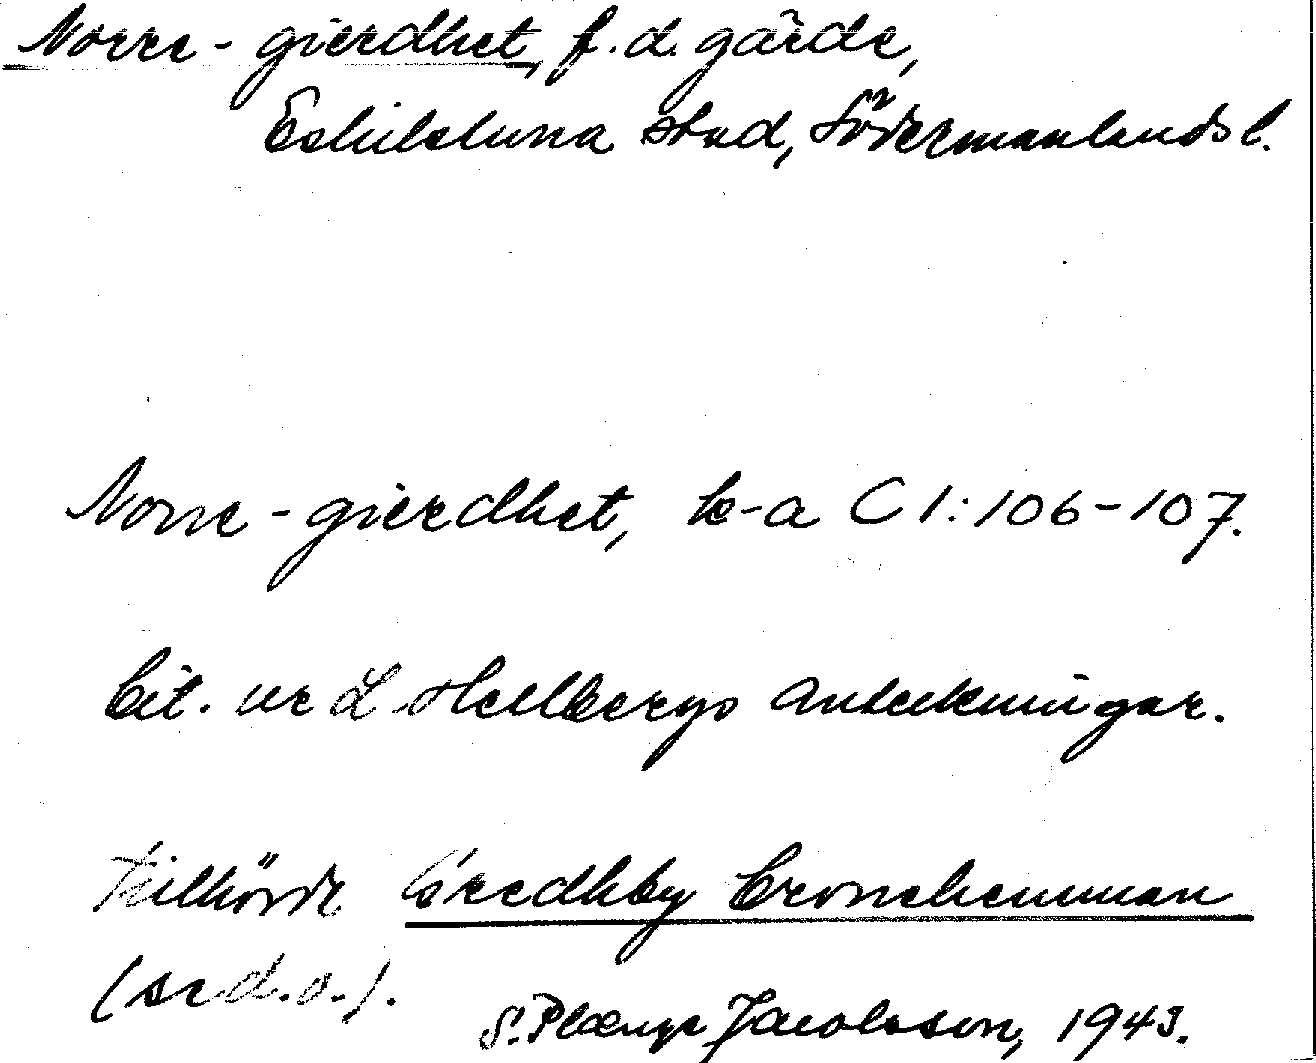 Norre-gierdhet, f.d. gärde,
Eskilstuna stad, Södermanlands l.
Norre-gierdhet, k-a C1:106-107.
Cit. ur L Hellbergs anteckningar.
Tillhörde Bredhby Cronehemman
(se d.o.).
S. Jacobsson, 1943.